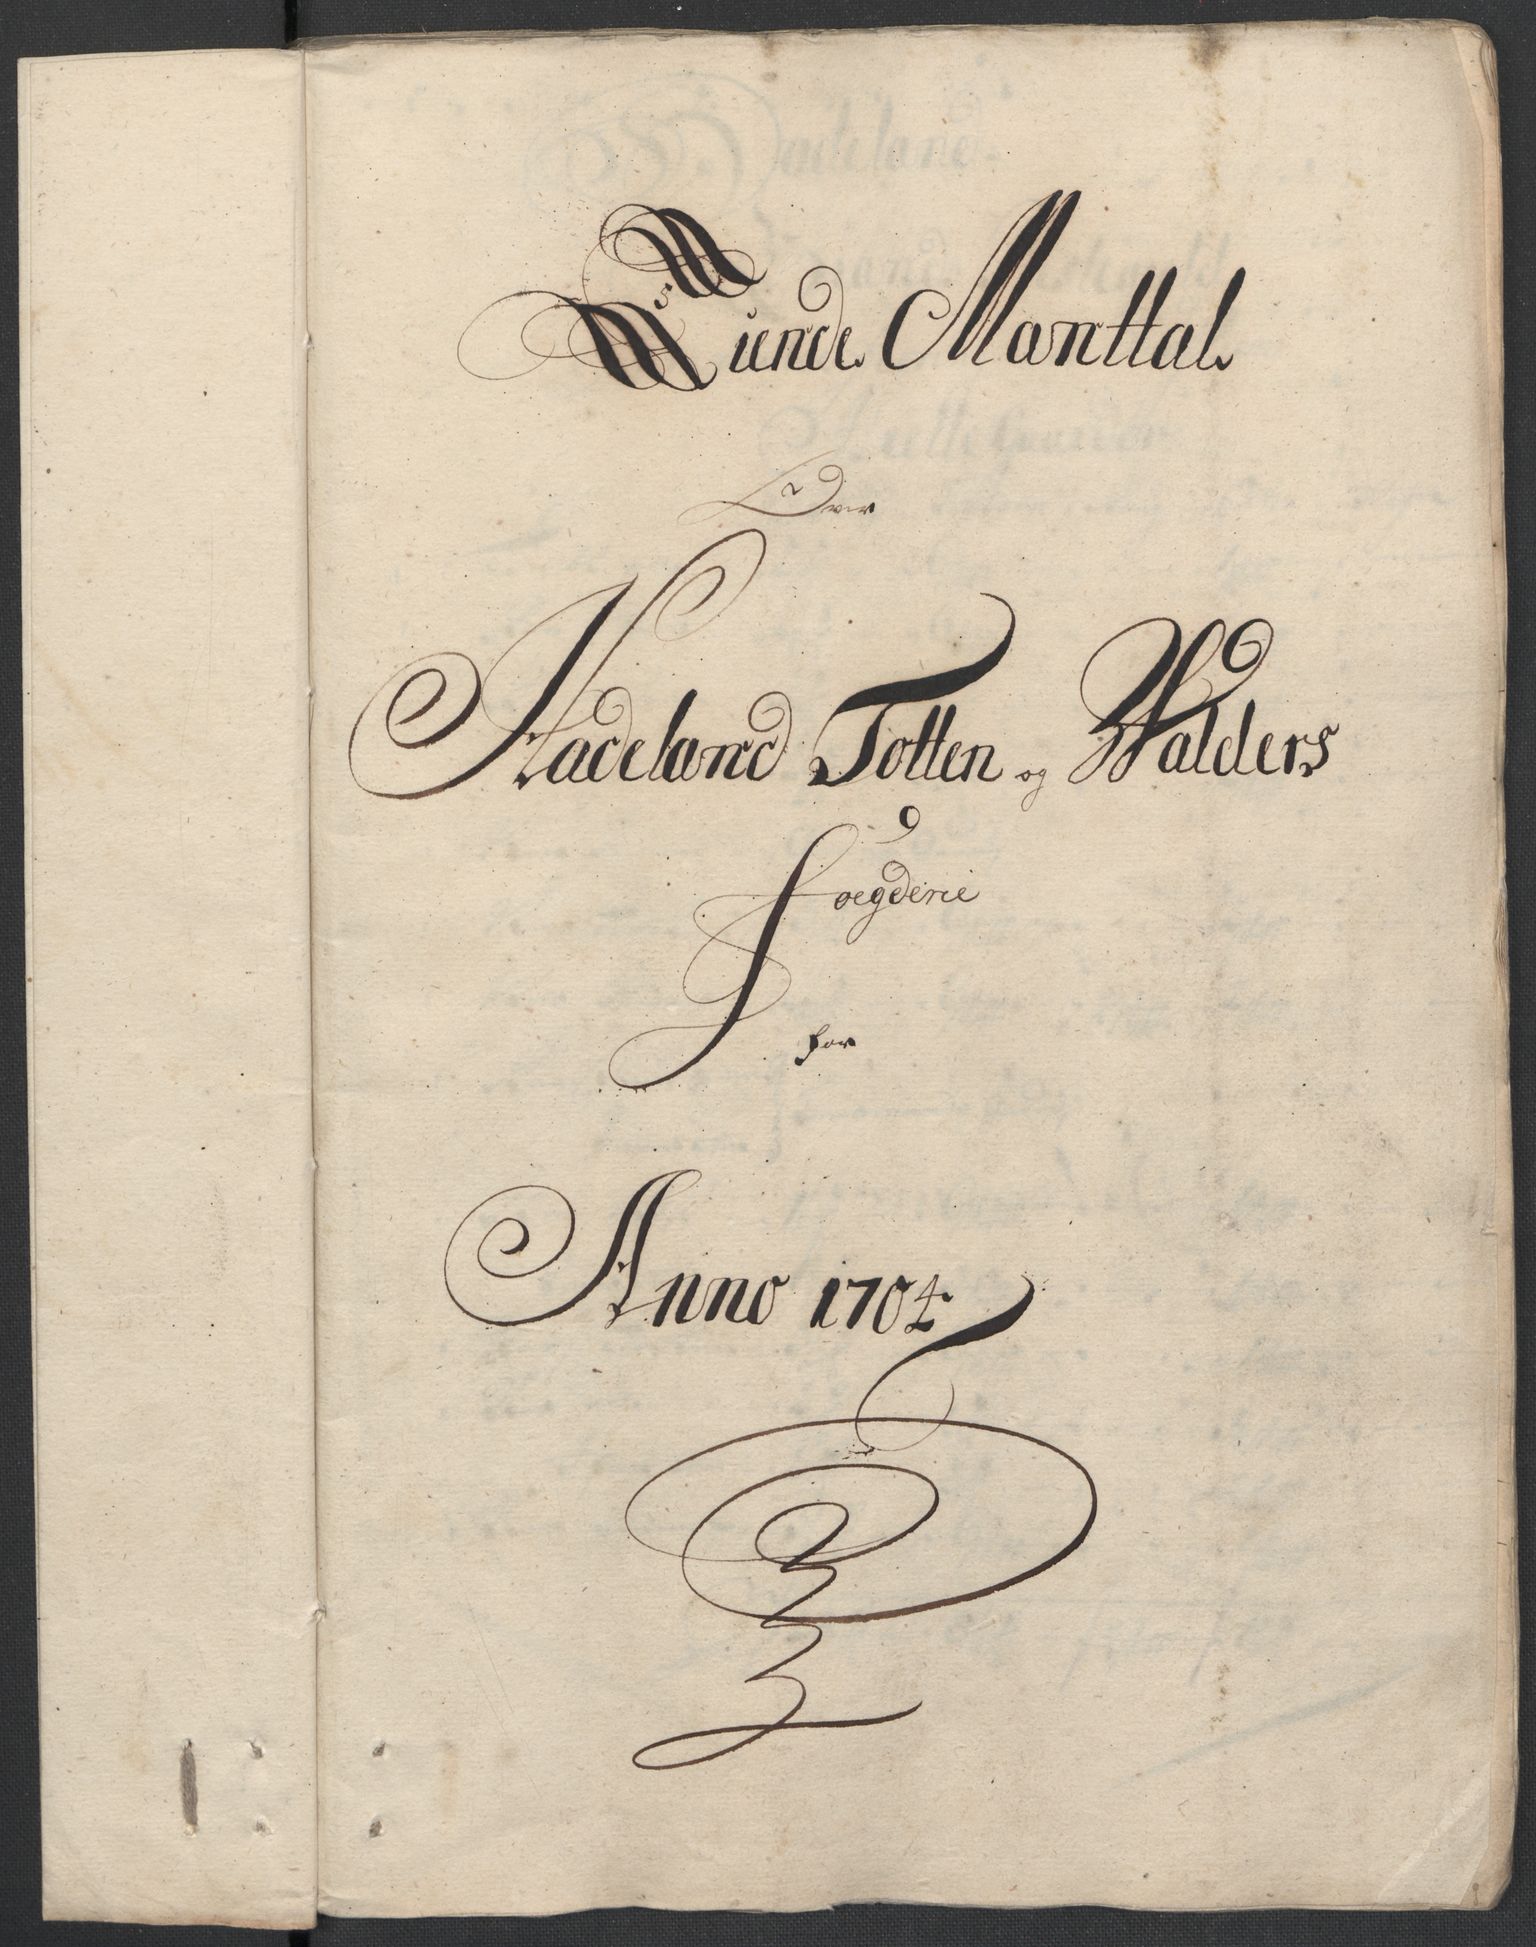 Tiende Manttal
Over
Hadeland Totten og Walders
Foegderie
for
Anno 1704